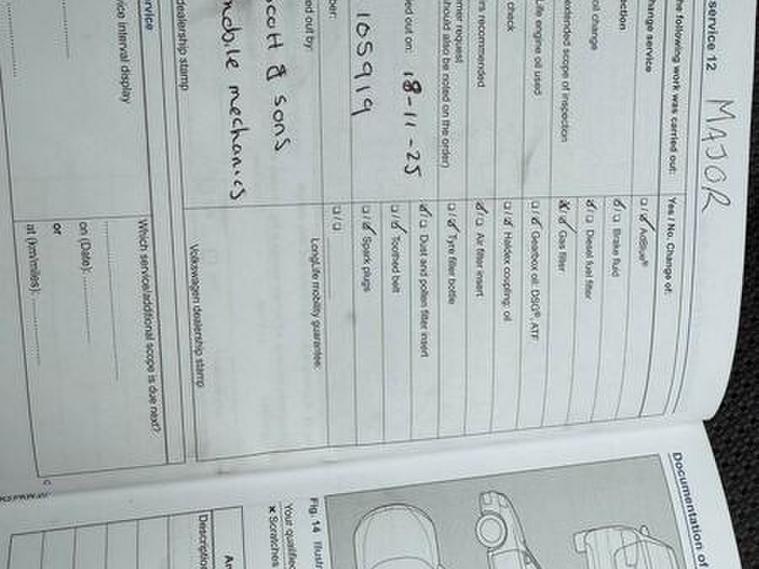 service 12 MAJOR
he following work was carried out:
hange service
ction
oil change
extended scope of inspection
Life engine oil used
check
rs recommended
mer request
hould also be noted on the order)
ied out on: 18-11-25
105919
ber:
ed out by:
cott & sons
mobile mechanics
dealership stamp
rvice
ice interval display
Yes / No, Change of:
☐/☑ AdBlue®
☑/☐ Brake fluid
☑/☐ Diesel fuel filter
☒/☑ Gas filter
☐/☑ Gearbox oil: DSG®, ATF
☐/☑ Haldex coupling: oil
☑/☐ Air filter insert
☐/☑ Tyre filler bottle
☑/☐ Dust and pollen filter insert
☐/☑ Toothed belt
☐/☑ Spark plugs
☐/☐
LongLife mobility guarantee:
Volkswagen dealership stamp
Which service/additional scope is due next?
on (Date):
or
at (km/miles):
Documentation of
Fig. 14 Illustr
Your qualified
× Scratches
Descriptio